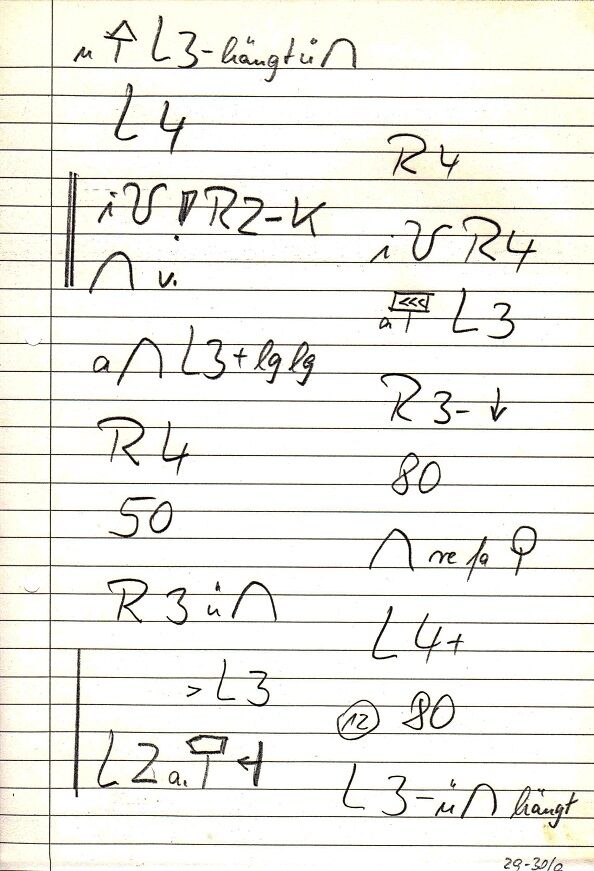 ü L3-hängt ü ∩
L 4
i ! R2-K
∩ v.
a ∩ L3+ lg lg
R 4
50
R 3 ü ∩
> L3
L2 a.
R 4
i R4
a. <<< L3
R 3- ↓
80
∩ re
L 4+
12 80
L 3-ü ∩ hängt
29-30/a